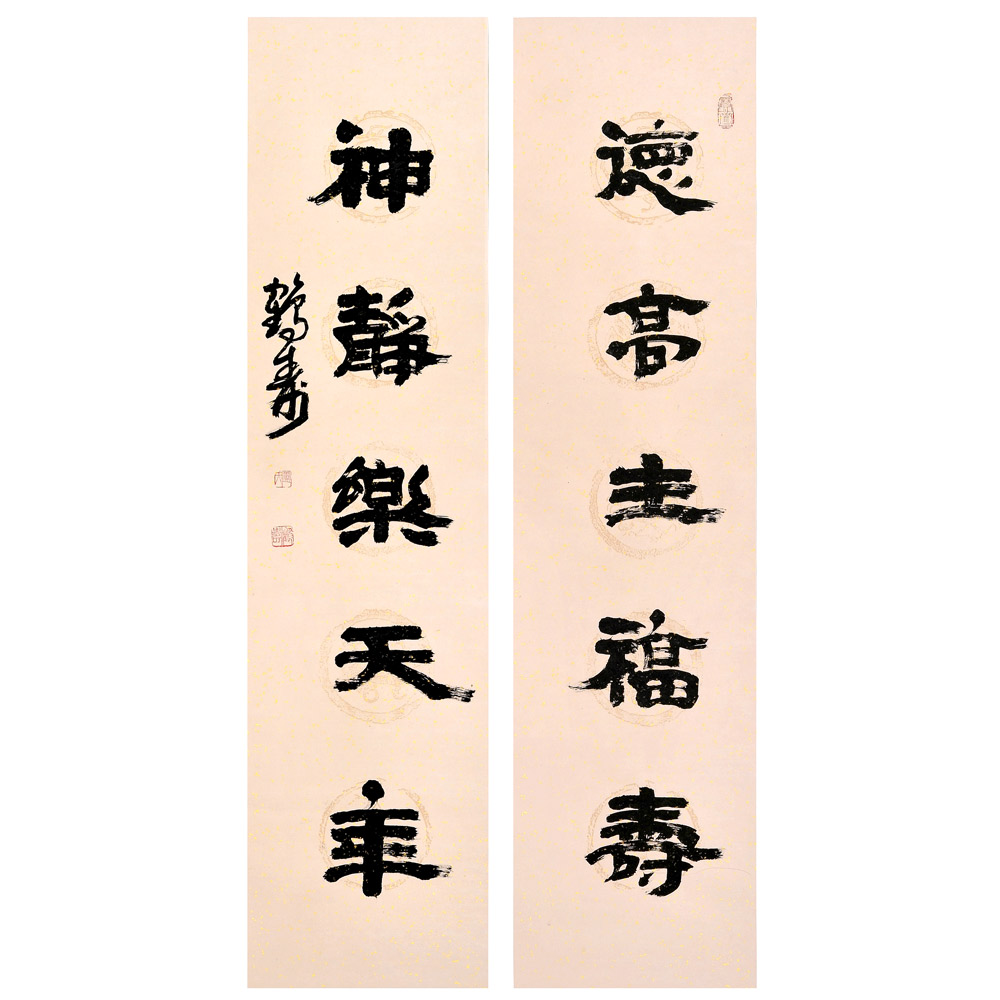 德高主福壽
神靜樂天年
鶴壽